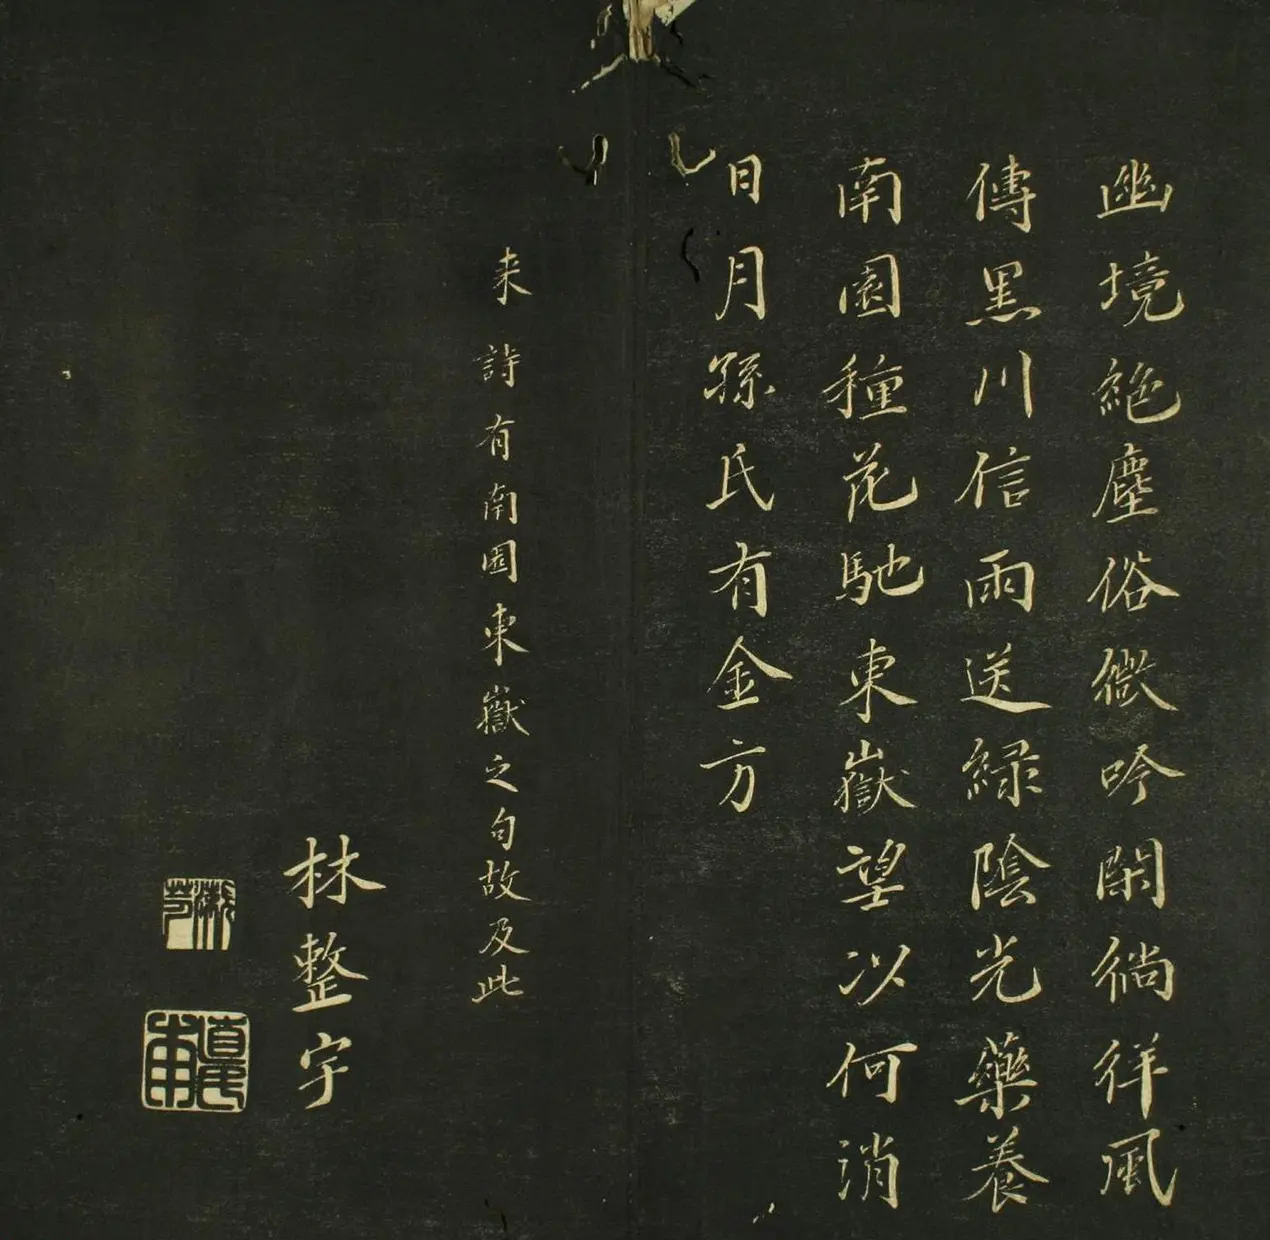 幽境絶塵俗微吟閑徜徉風
傳黒川信雨送緑陰光藥養
南園種花馳東嶽望以何消
日月孫氏有金方
来詩有南園東嶽之句故及此
林整宇
直民